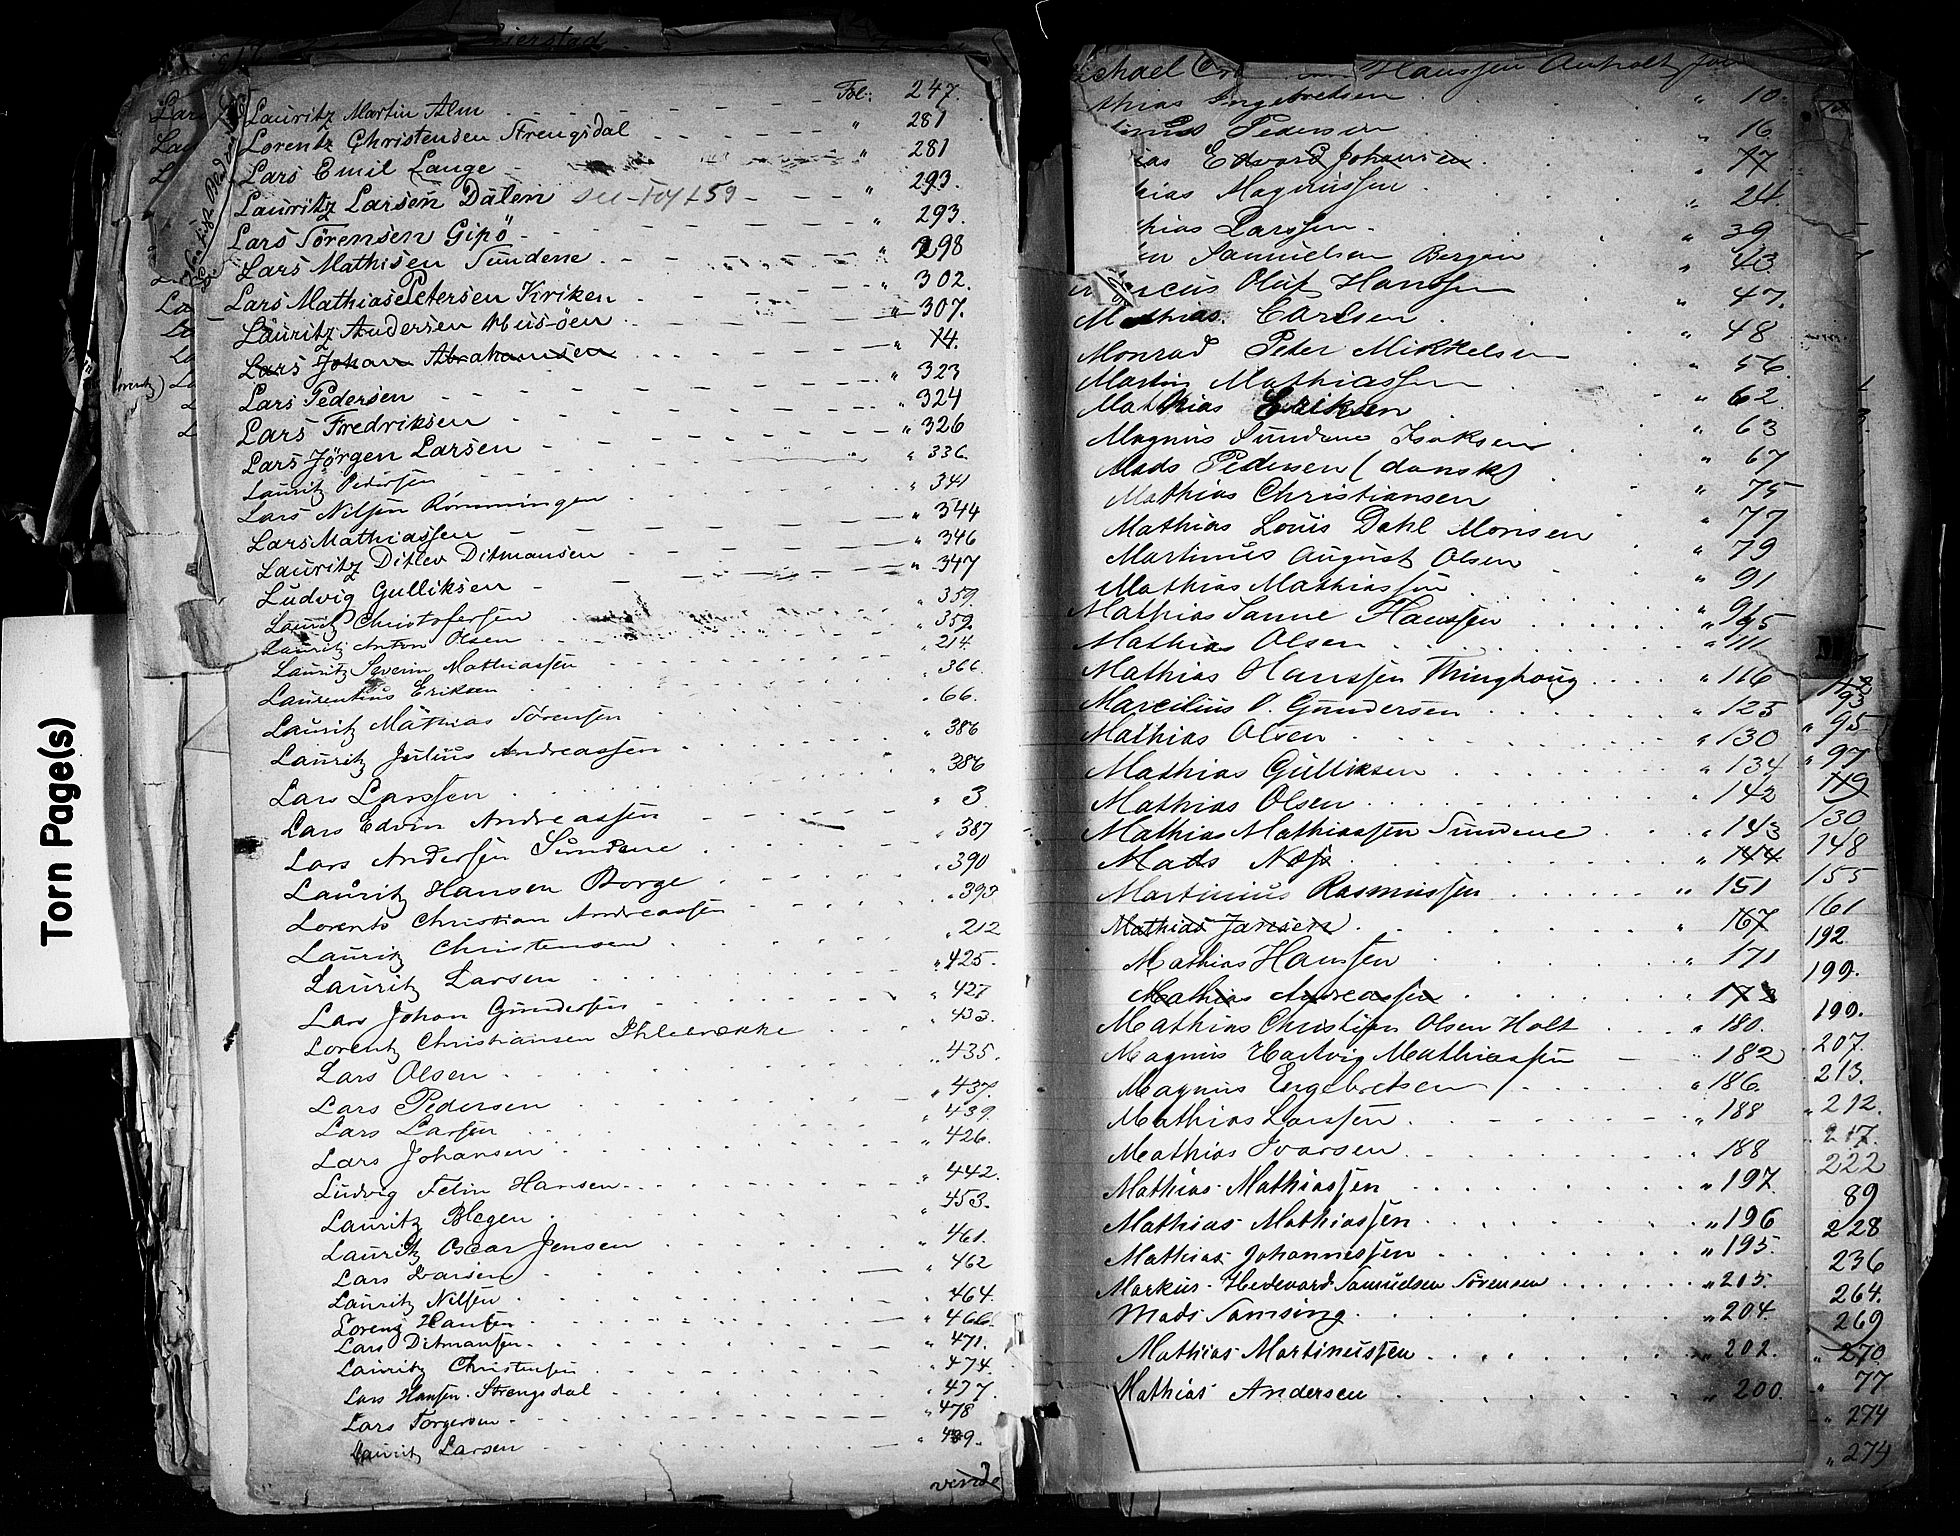 Torn Page(s)
Lauritz Martin Alm Fol: 247.
Lorentz Christensen Strengsdal " 281
Lars Emil Lange " 281
Lauritz Larsen Dalen " 293.
Lars Sørensen Gipö " 293.
Lars Mathisen Sundene " 298
Lars Mathiase Petersen Kriken " 302.
Lauritz Andersen Husöen " 307.
Lars Johan Abrahamsen " 74.
Lars Pedersen " 323
Lars Fredriksen " 324
Lars Jörgen Larsen " 326
Lauritz Pedersen " 336
Lars Nilsen Römmingen " 341
Lars Mathiassen " 344
Lauritz Ditlev Ditmansen " 346
Ludvig Gulliksen " 347
Lauritz Christofersen " 359.
Lauritz Anton Olsen " 359.
Lauritz Severin Mathiassen " 214.
Laurentius Eriksen " 366.
Lauritz Mathias Sörensen " 66.
Lauritz Julius Andreassen " 386
Lars Larssen " 386
Lars Edvin Andreassen " 3.
Lars Andersen Sundene " 387
Lauritz Hansen Borge " 390
Lorents Christian Andreassen " 393
Lauritz Christensen " 212
Lauritz Larsen " 425.
Lars Johan Gundersen " 427
Lorentz Christiansen " 433.
Lars Olsen " 435.
Lars Pedersen " 437.
Lars Larsen " 439.
Lars Johansen " 426.
Ludvig Felin Hansen " 442.
Lauritz Blegen " 453.
Lauritz Oscar Jensen " 461.
Lars Ivarsen " 462
Lauritz Nilsen " 464.
Lorenz Hansen " 466.
Lars Ditmansen " 471.
Lauritz Christensen " 474.
Lars Hansen Strengsdal " 477.
Lars Torgersen " 478
Lauritz Larsen " 489.
vende
Hanssen Anholt
thias Ingebretsen " 10.
Pedersen " 16
ias Edvard Johansen " 77
hias Magnussen " 24.
hias Larssen " 39
Samuelsen Bergan " 43
rcus Olaf Hanssen " 47.
Mathias Carlsen " 48
Monrad Peter Mikkelsen " 56
Martin Mathiassen " 62.
Mathias Eriksen " 63
Magnus Sundene Isaksen " 67
Mads Pedersen (dansk) " 75
Mathias Christiansen " 77
Mathias Louis Dahl Monsen " 79
Martinus August Olsen " 91
Mathias Mathiassen
Mathias Sanne Hanssen
Mathias Olsen " 111
Mathias Hanssen Thinghoug " 116
Marcilius O. Gundersen " 125
Mathias Olsen " 130
Mathias Gulliksen " 134
Mathias Olsen " 142
Mathias Mathiassen Sundene " 143
Mads Näss " 144
Martinius Rasmussen " 151
Mathias Jansen " 167
Mathias Hanssen " 171
Mathias Andreassen " 173
Mathias Christian Olsen Holt " 180.
Magnus Hartvig Mathiassen " 182
Magnus Engebretsen " 186.
Mathias Larssen " 188
Mathias Ivarsen " 188
Mathias Mathiassen " 197.
Mathias Mathiassen " 196
Mathias Johannessen " 195.
Markus Hedevard Samuelsen Sörensen " 205.
Mads Samsing " 204.
Mathias Martinussen " 202.
Mathias Andersen " 200.
" 95
" 97
119
130
148
155
161
192.
199.
190.
207.
213.
" 212.
217.
222
89
228
236
264.
269
" 270.
" 77
" 274
" 279